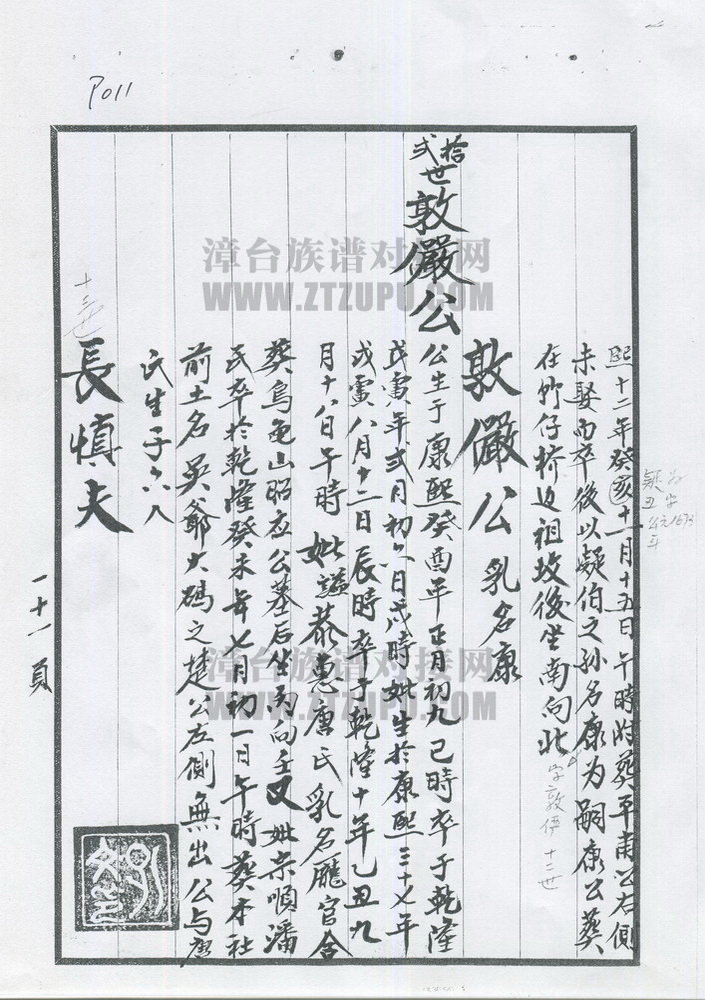 P011
熙十二年癸亥十一月十五日午時附葬平甫公右側
未娶而卒後以凝伯之孫名康为嗣康公葬
在竹仔桥边祖坟後坐南向北
字敦伊 十二世
敦儼公 乳名康
拾弍世敦儼公
公生于康熙癸酉年正月初九巳時卒于乾隆
戊寅年弍月初六日戌時妣生於康熙三十七年
戊寅八月十二日辰時卒于乾隆十年乙丑九
月十八日午時 妣謚恭惠唐氏乳名廳官合
葬烏龟山昭应公墓后坐丙向壬又妣宗順潘
氏卒於乾隆癸未年七月初一日午時葬本社
前土名吴爺大碼之楚公左側無出公与唐
氏生子六人
十三世
長慎夫
一十一頁
漳台族谱对接网
WWW.ZTZUPU.COM
漳台族谱对接网
WWW.ZTZUPU.COM